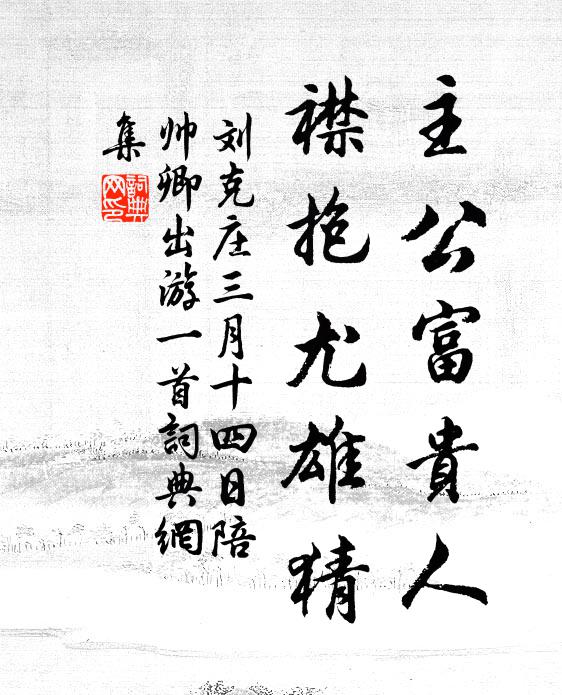 主公富貴人
襟抱尤雄猜
刘克庄三月十四日陪
帅卿出游一首詞典網
集
詞典
网印